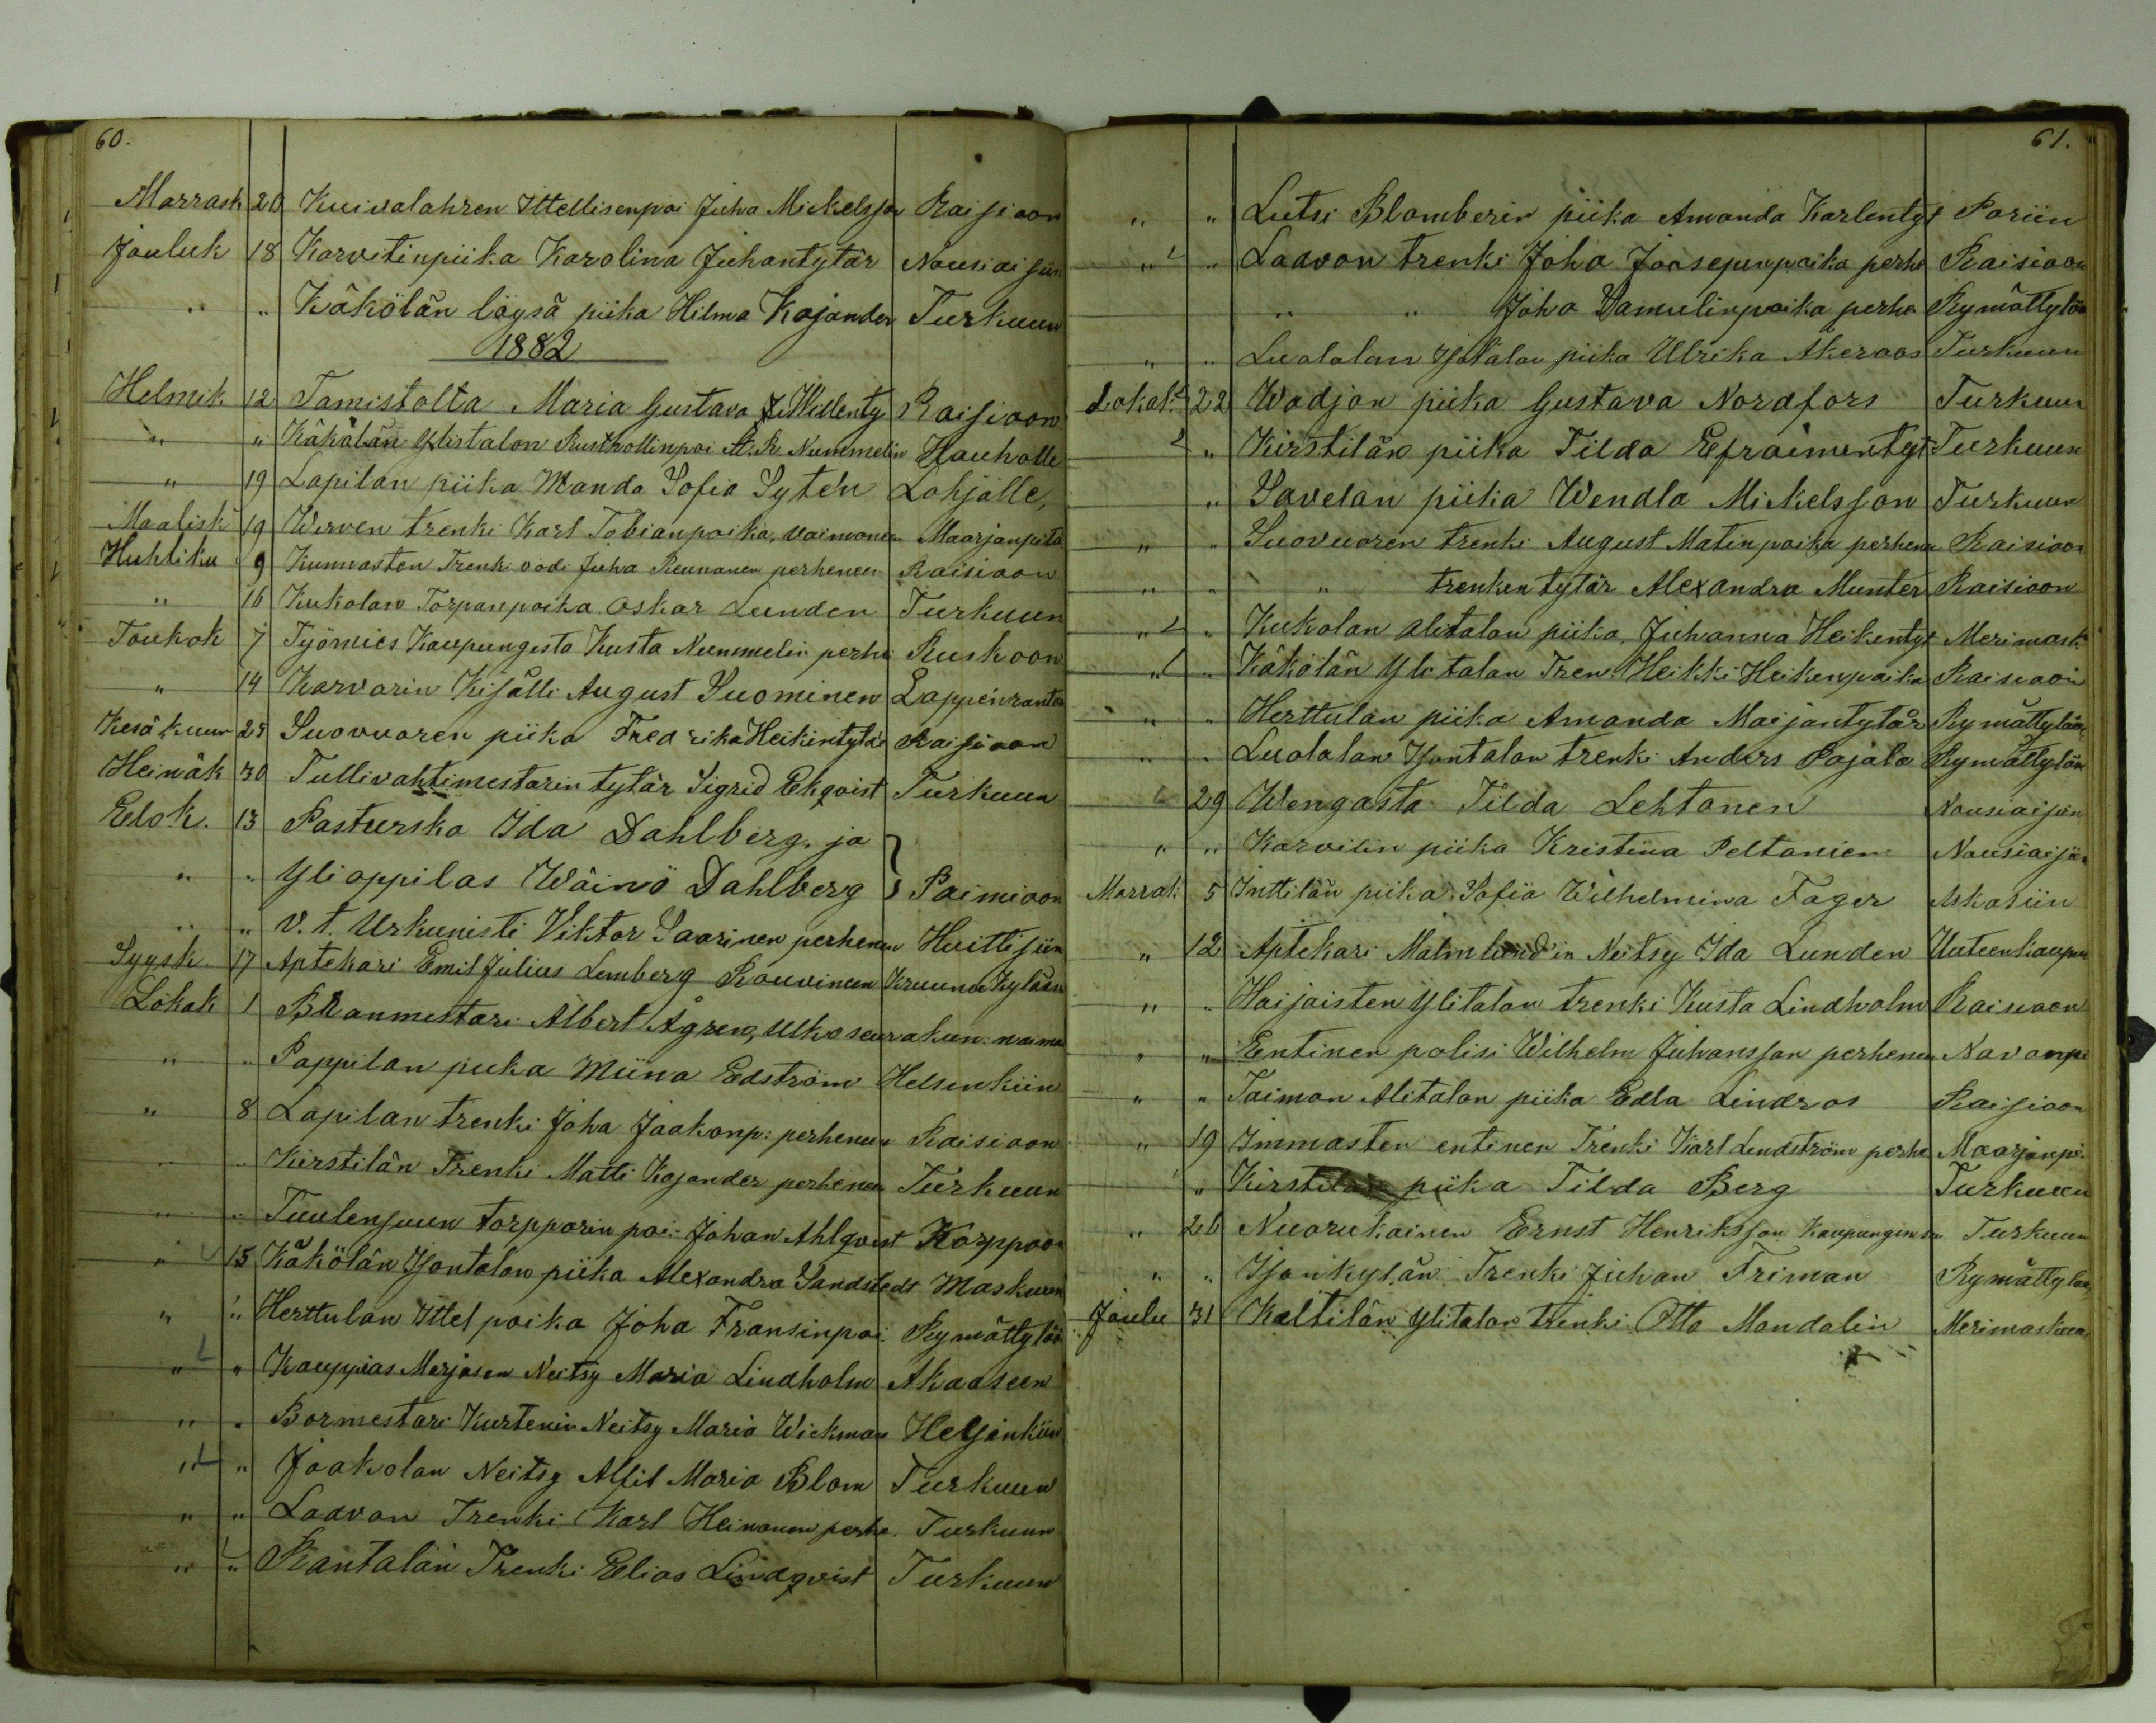 60.
Marrask 20 Kuivalahren Ittellisenpoi Juha Mickelsson Raisioon
Jouluk 18 Karvetinpiika Karolina Juhantytär Nousiaisiin
" " Käkölän löysä piika Hilma Kajander Turkuun
1882
Helmik 12 Tamistolta Maria Gustava J. Willenty Raisioon
" " Käkölän Ylistalon Rusthollinpoi A. R. Nummelin Hauholle
" 19 Lapilan piika Manda Sofia Syten Lohjalle,
Maalisk 19 Wirven trenki Karl Tobianpoika, vaimonen Maarjanpitä
Huhtiku 9 Kunnasten Trenki vodi Juha Reunanen perheneen Raisioon
" 16 Kukolan Torpanpoika Oskar Lunden Turkuun
Toukok 7 Työmies Kaupungista Kusta Nummelin perhe Ruskoon
" 14 Karvarin Kisälli August Suominen Lappenranta
Kesäkuun 25 Suovuoren piika Fredrika Heikintytär Raisioon
Heinäk 30 Tullivahtimestarin tytär Sigrid Ekqvist Turkuun
Elok. 13 Pasturska Ida Dahlberg, ja
" " Ylioppilas Wäinö Dahlberg } Paimioon
" " V. t. Urkunisti Viktor Saarinen perhenen Huittisiin
Syysk. 17 Aptekari Emil Julius Lemberg Rouvineen Kruunukylään
Lokak 1 Rranmestari Albert Ågren, Ulkoseurakun. naima
" " Pappilan piika Miina Edström Helsenkiin
" 8 Lapilan trenki Joha Jaakonp: perheneen Raisioon
" " Kirstilän Trenki Matti Kajander perhenen Turkuun
" " Tuulensuun torpparin poi. Johan Ahlqvist Korppoon
" 15 Käkölän Isontalon piika Alexandra Sandstedt Maskuun
" " Herttulan Ittel poika Joha Fransinpoi Rymättylän
" " Kauppias Merjasen Neitsy Maria Lindholm Akaaseen
" " Bormestari Kurtenin Neitsy Maria Wickman Helsinkiin
" " Jaakolan Neitsy Alfil Maria Blom Turkuun
" " Laavon Trenki Karl Heinonen perhe. Turkuun
" " Rantalan Trenki Elias Lindqvist Turkuun
61.
" " Lutsi Blomberin piika Amanda Karlentyt Poriin
" " Laavon trenki Joha Joosepinpoika perhe Raisioon
" " Joha Samulinpoika perhe Rymättylän
" " Luolalan Isotalon piika Ulrika Akeroos Turkuun
Lokak 22 Wadjon piika Gustava Nordfors Turkuun
" Kirstilän piika Tilda Efraimentyt Turkuun
" Savelan piika Wendla Mickelsson Turkuun
" " Suovuoren trenki August Matinpoika perhenen Raisioon
" " " trenken tytär Alexandra Munter Raisioon
" " Kukolan alitalon piika Juhanna Heikentyt Merimask.
" " Käkölän Ylitalon Tren. Heikki Heikenpoika Raisioon
" " Herttulan piika Amanda Maijantytär Rymättylän
" " Luolalan Isontalon trenki Anders Pajala Rymättylän
29 Wengasta Tilda Lehtonen Nousiaisiin
" " Karvetin piika Kristina Peltonien Nousiaisiin
Marrak 5 Inttilän piika Sofia Wilhelmina Fager Askasiin
" 12 Aptekari Malmlund'in Neitsy Ida Lunden Uuteenkaupun
" " Haijaisten Ylitalon trenki Kusta Lindholm Raisioon
" " Entinen polisi Wilhelm Juhansson perhenen Navonpi
" " Taimon Alitalon piika Edla Lindros Raisioon
" 19 Immasten entinen Trenki Karl Lindström perhe Maarjanpi.
" " Kirstilän piika Tilda Berg Turkuun
" 26 Nuorukainen Ernst Henriksson Kaupungin Turkuun
" " Isonkylän Trenki Juhan Friman Rymättylän
Joulu 31 Kaltilän Ylitalon trenki Otto Mandalin Merimaskuu